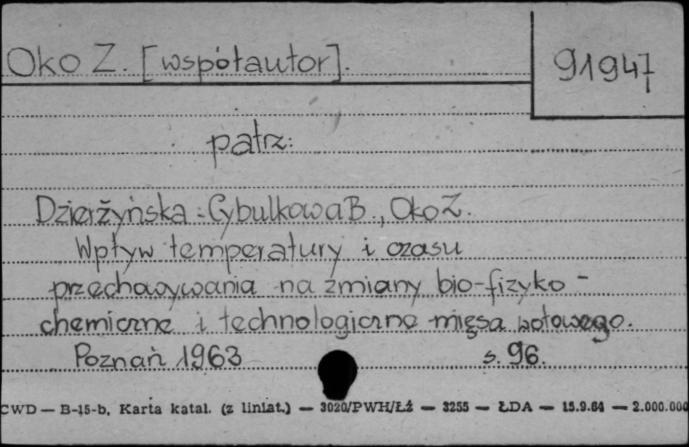 Oko Z. [współautor].
91947
patrz:
Dzierżyńska-Cybulkowa B., Oko Z.
Wpływ temperatury i czasu
przechowywania na zmiany bio-fizyko-
chemiczne i technologiczne mięsa wołowego.
Poznań 1963 s. 96.
CWD — B-15-b, Karta katal. (z liniat.) — 3020/PWH/Łż — 3255 — ŁDA — 15.9.64 — 2.000.000